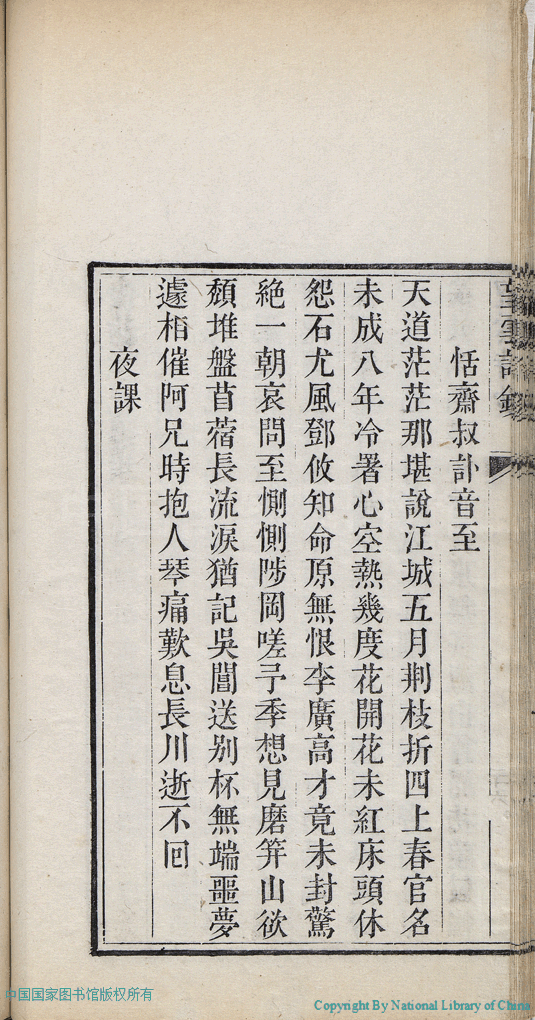 恬齋叔訃音至
天道茫茫那堪說江城五月荆枝折四上春官名
未成八年冷署心空熱幾度花開花未紅床頭休
怨石尤風鄧攸知命原無恨李廣高才竟未封驚
絶一朝哀問至惻惻陟岡嗟予季想見磨笄山欲
頽堆盤苜蓿長流淚猶記吳閶送别杯無端噩夢
遽相催阿兄時抱人琴痛歎息長川逝不回
夜課
中国国家图书馆版权所有
Copyright By National Library of China